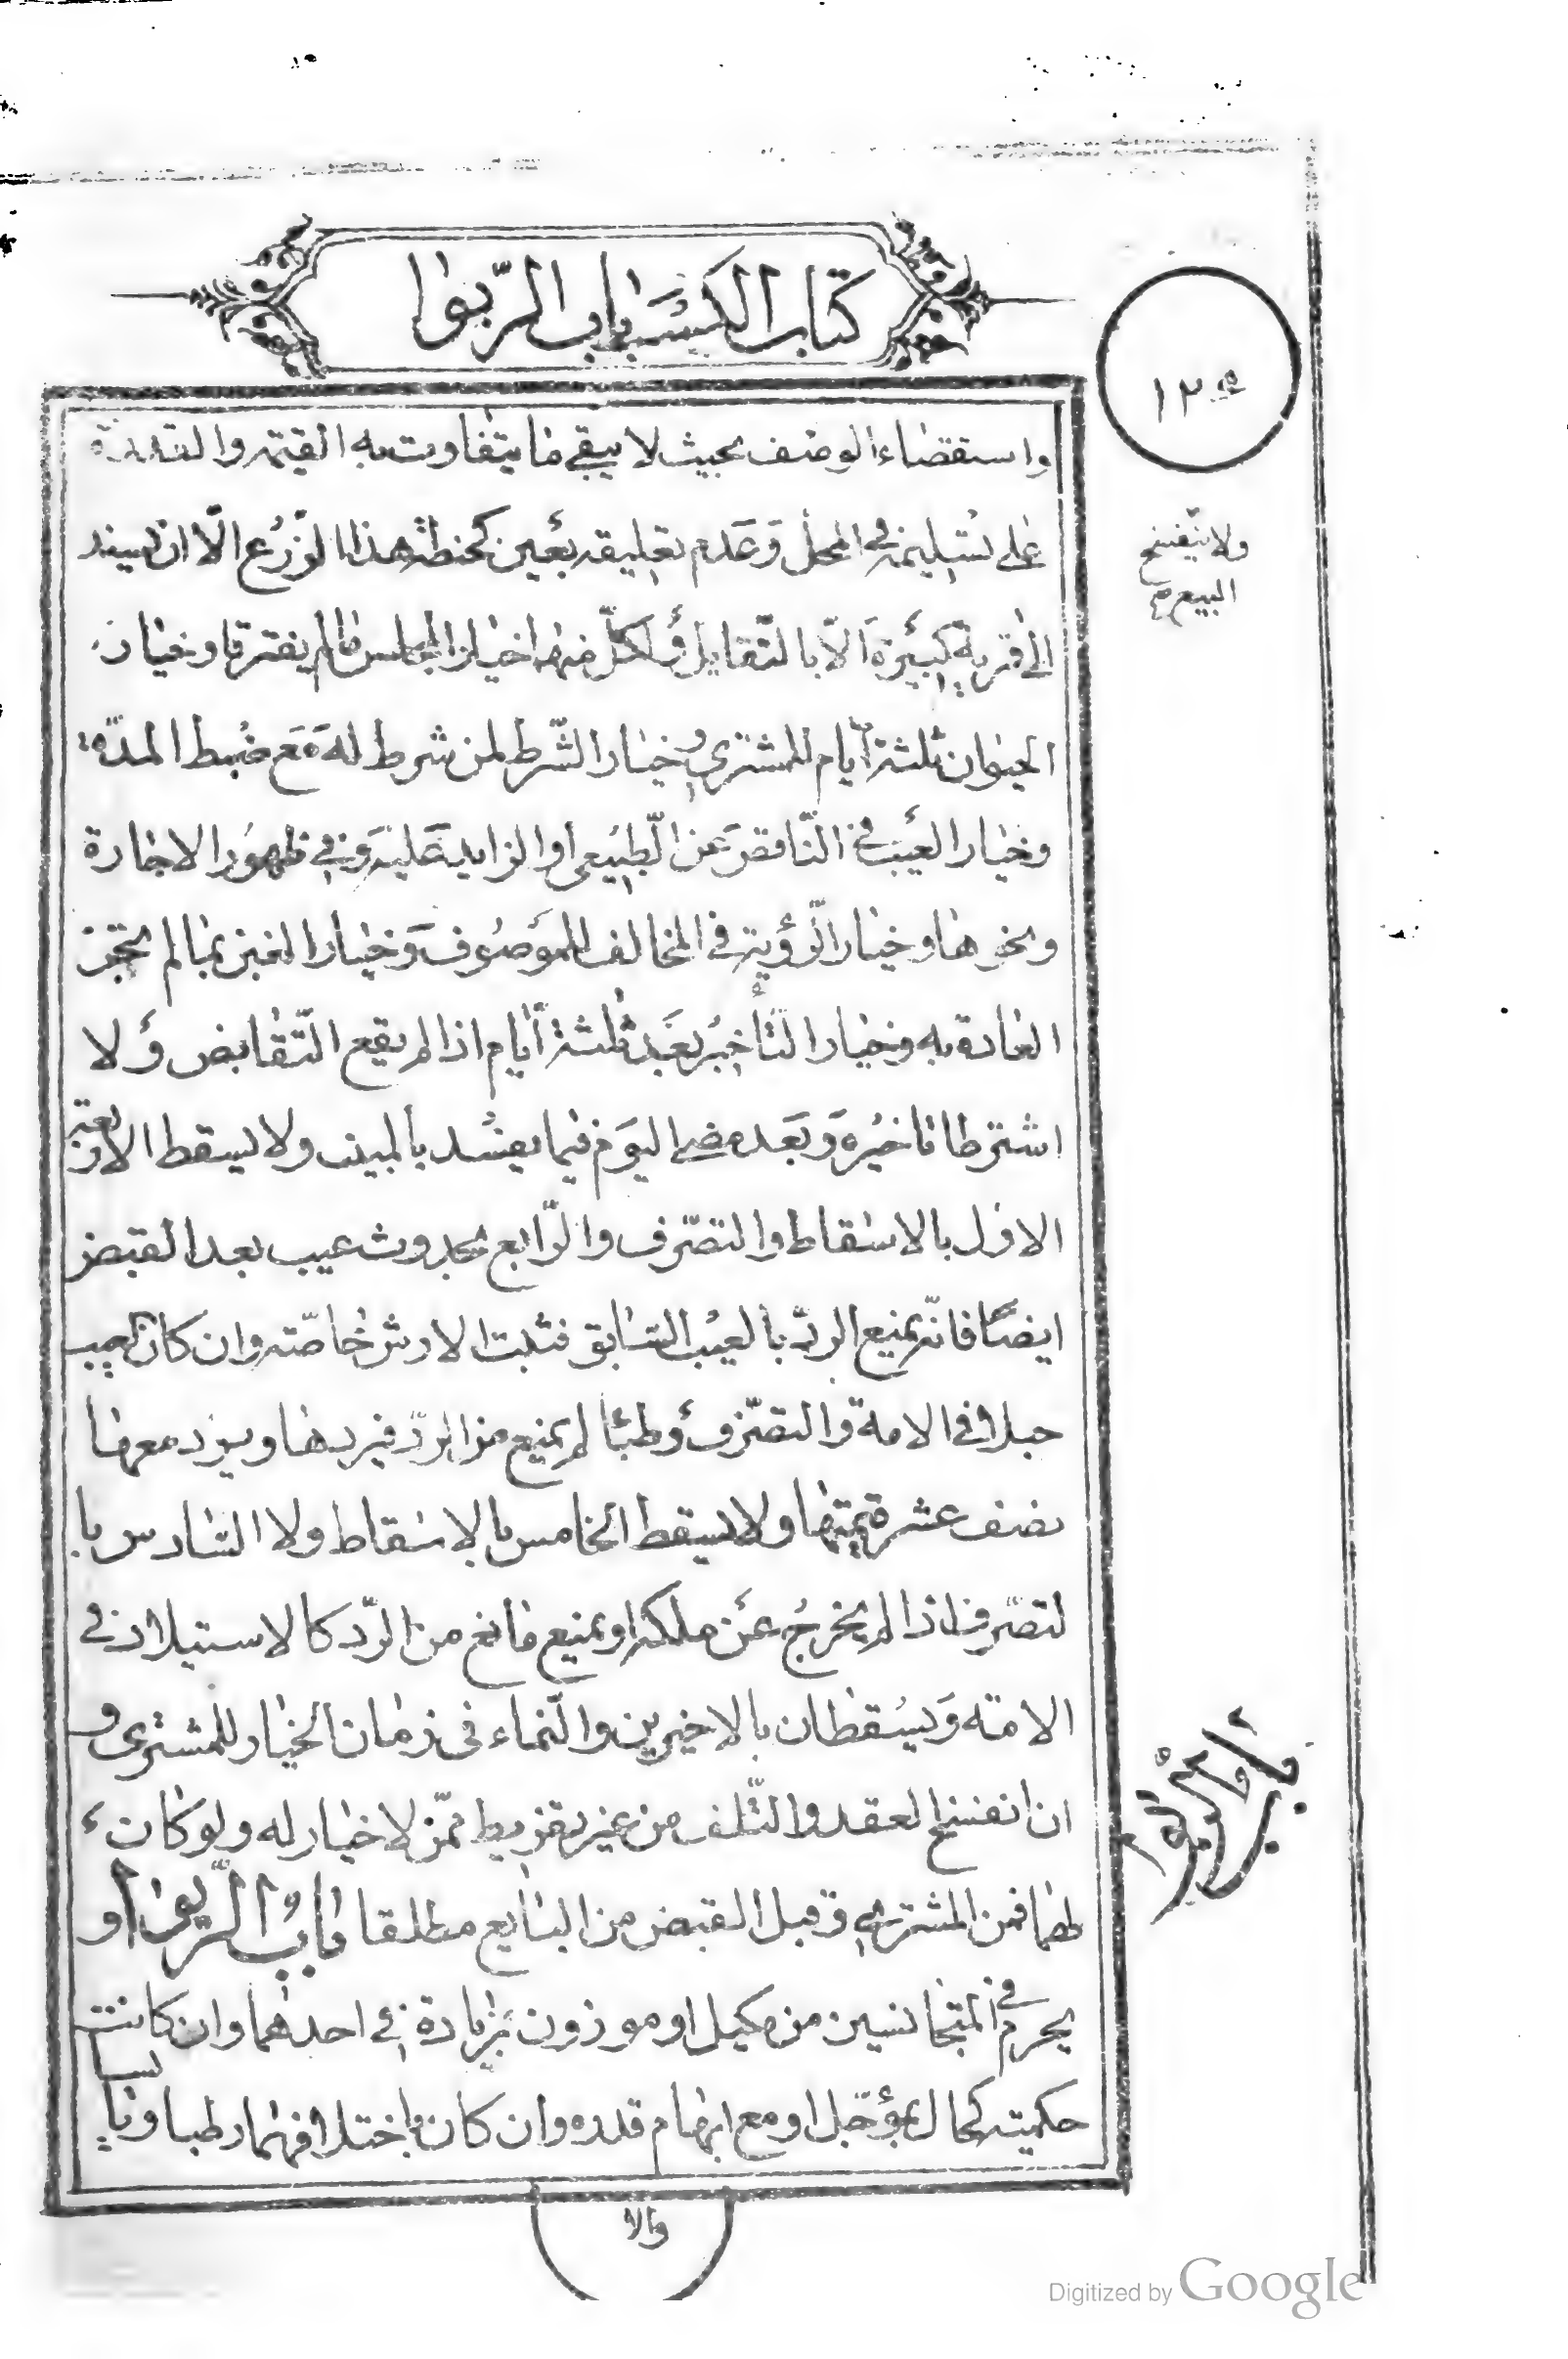 كتاب الكسب باب الربوا
١٣٥
واستقصاء الوصف بحيث لا يبقى ما يتفاوت به القيمة والقدرة
على تسليمه في المحل وعدم تعليقه بعين كحنطة هذا الزرع الا ان يسند
ولا ينفسخ
البيع صح
الى قرية كبيرة الا بالتقايل ولكل منهما خيار المجلس ما لم يفترقا وخيار
الحيوان ثلثة ايام للمشتري وخيار الشرط لمن شرط له مع ضبط المدة
وخيار العيب في الناقص عن الطبيعي او الزايد عليه وفي ظهور الاجارة
ونحوها وخيار الرؤية في المخالف للموصوف وخيار الغبن بما لم تجز
العادة به وخيار التأخير بعد ثلثة ايام اذا لم يقع التقابض ولا
اشترطا تاخيره وبعد مضي اليوم فيما يفسد بالمبيت ولا يسقط الاربعة
الاول بالاسقاط والتصرف والرابع بحدوث عيب بعد القبض
ايضا فانه يمنع الرد بالعيب السابق فثبت الارش خاصة وان كان العيب
حبلا في الامة والتصرف وطئا لم يمنع من الرد فيردها ويرد معها
نصف عشر قيمتها ولا يسقط الخامس بالاسقاط ولا السادس با
لتصرف اذا لم يخرج عن ملكه او يمنع مانع من الرد كالاستيلاد في
الامة ويسقطان بالاخيرين والنماء في زمان الخيار للمشتري و
ان انفسخ العقد والتلف من غير تفريط ممن لا خيار له ولو كان
لهما فمن المشتري وقبل القبض من البايع مطلقا باب الربوا و
يحرم في المتجانسين من مكيل او موزون بزيادة في احدهما وان كانت
حكمية كحال بمؤجل او مع ابهام قدره وان كان باختلافهما رطبا ويابسا
والا
Digitized by Google